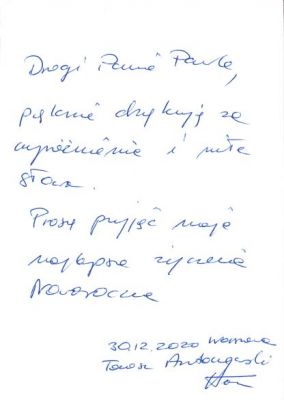 Drogi Panie Pawle,
pięknie dziękuję za
wyróżnienie i miłe
słowa.
Proszę przyjąć moje
najlepsze życzenia
Noworoczne
30.12.2020 Warszawa
Tomasz